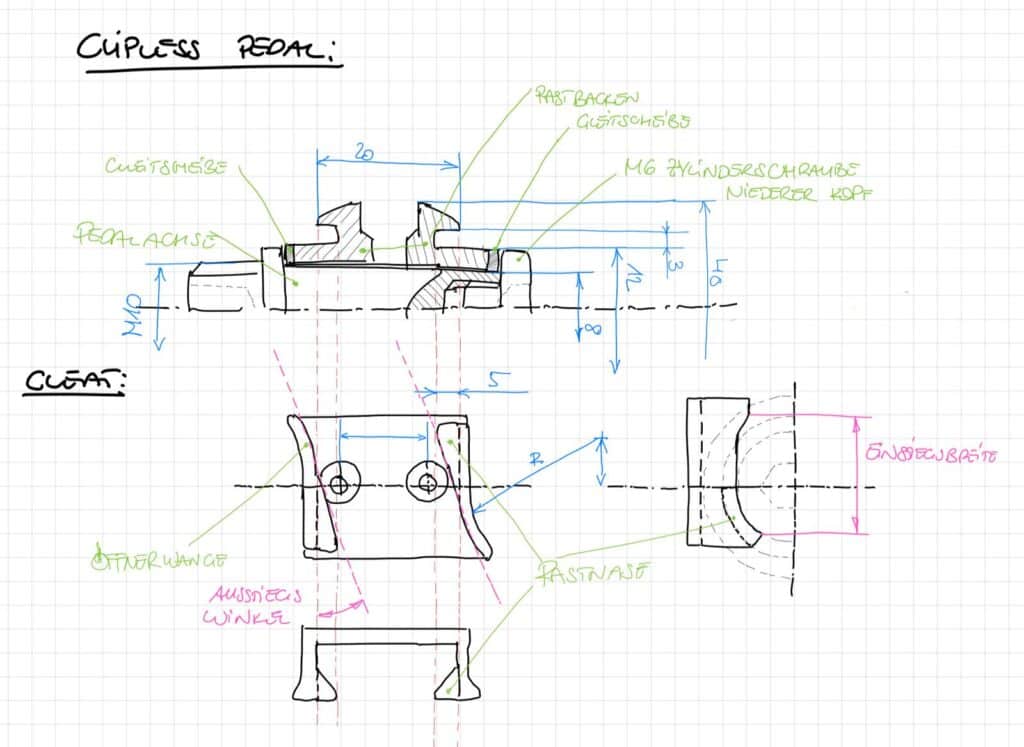 CLIPLESS PEDAL:
RASTBACKEN
GLEITSCHEIBE
20
GLEITSCHEIBE
M6 ZYLINDERSCHRAUBE
NIEDERER KOPF
PEDALACHSE
M10
8
12
3
40
CLEAT:
5
R
EINSTIEGSBREITE
ÖFFNERWANGE
RASTNASE
AUSSTIEGS
WINKEL